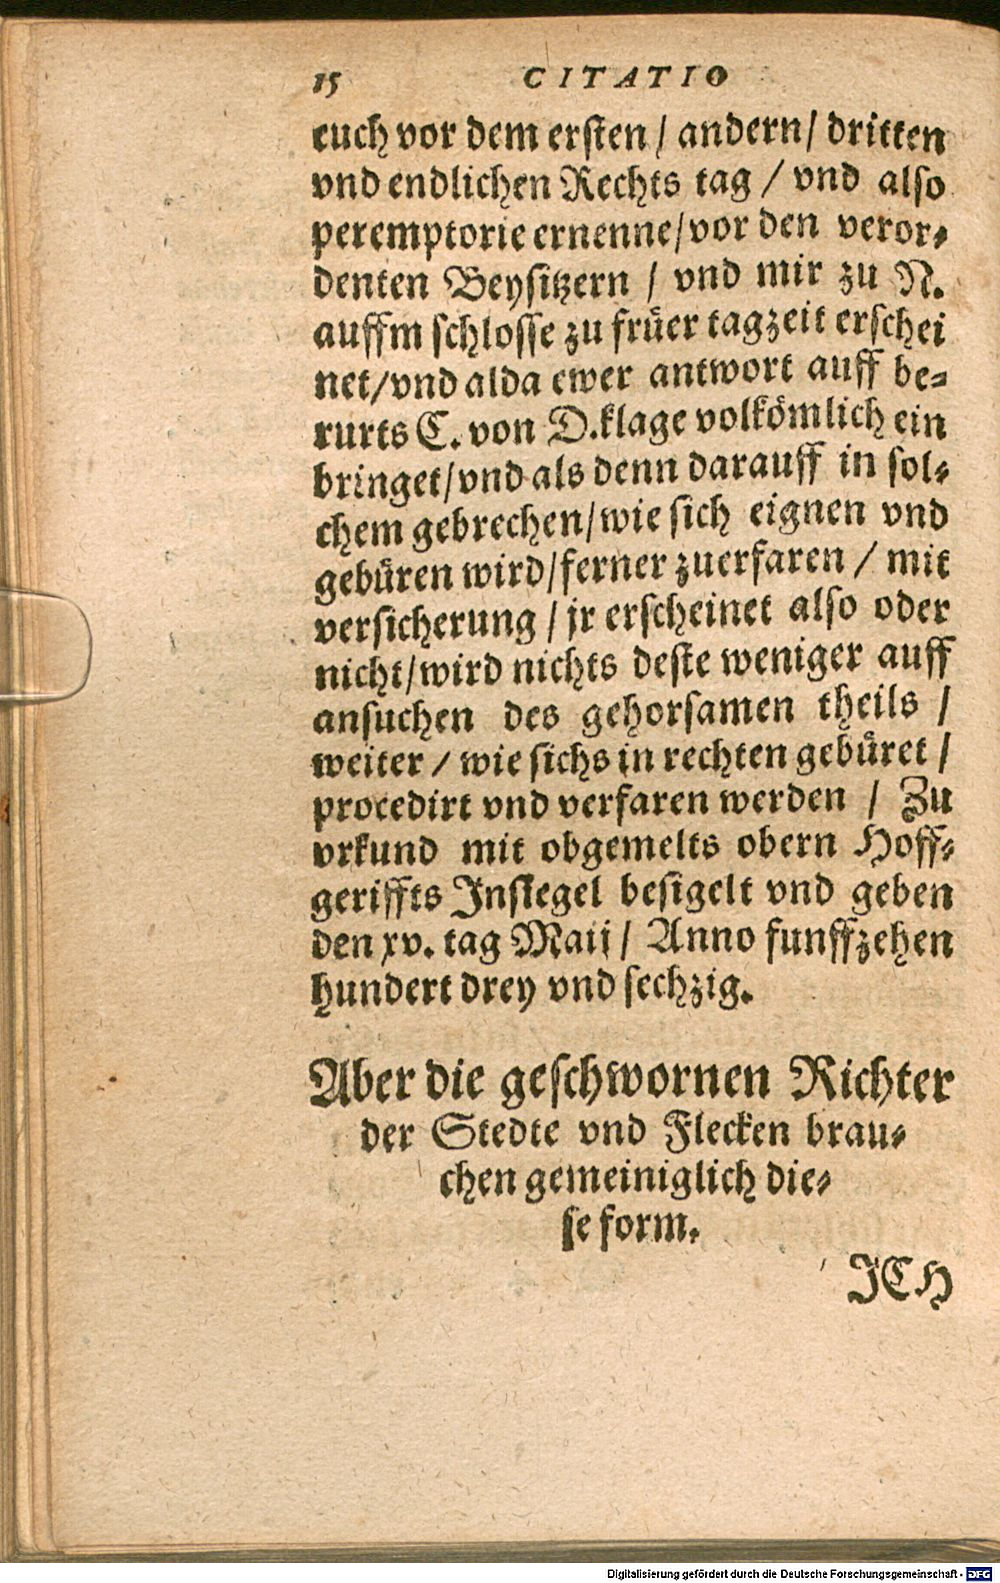 15 CITATIO
euch vor dem ersten / andern / dritten
vnd endlichen Rechts tag / vnd also
peremptorie ernenne / vor den veror-
denten Beysitzern / vnd mir zu N.
auffm schlosse zu früer tagzeit erschei
net / vnd alda ewer antwort auff be-
rurts C. von D. klage volkömlich ein
bringet / vnd als denn darauff in sol-
chem gebrechen / wie sich eignen vnd
gebüren wird / ferner zuerfaren / mit
versicherung / jr erscheinet also oder
nicht / wird nichts deste weniger auff
ansuchen des gehorsamen theils /
weiter / wie sichs in rechten gebüret /
procedirt vnd verfaren werden / Zu
vrkund mit obgemelts obern Hoff-
geriffts Insiegel besigelt vnd geben
den xv. tag Maij / Anno funffzehen
hundert drey vnd sechzig.
Aber die geschwornen Richter
der Stedte vnd Flecken brau-
chen gemeiniglich die-
se form.
ICH
Digitalisierung gefördert durch die Deutsche Forschungsgemeinschaft - DFG